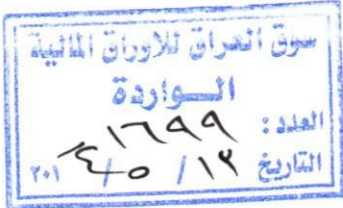 سوق العراق للاوراق المالية
الـــواردة
العدد : ١٦٩٩
التاريخ ١٢ / ٥ / ٢٠١٤